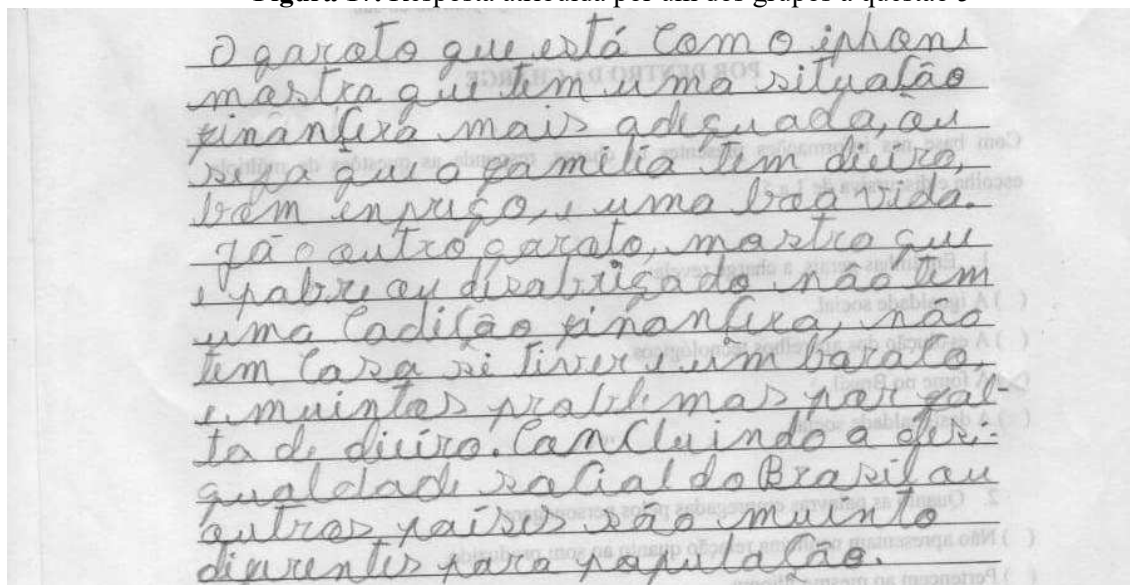 Figura 17: Resposta atribuída por um dos grupos à questão 3
O garoto que está com o iphone
mostra que tem uma situação
finânceira mais adequada, ou
seja que o família tem dieiro,
bom enprego, e uma boa vida.
Já o outro garoto, mostra que
e pobre ou disabrigado não tem
uma codição finanfeira, não
tem casa si tiver e um barato,
e muintos problemas por fal-
ta de dieiro. Concluindo a des-
gualdade social do Brasil ou
outros países são muinto
diferentes para população.